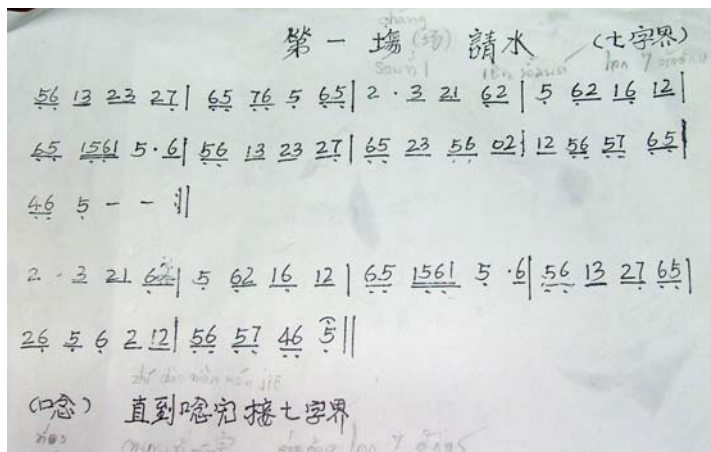 第一塲(場) 請水 (七字界)
56 13 23 27 | 65 76 5 65 | 2 · 3 21 62 | 5 62 16 12 |
65 1561 5 · 6 | 56 13 23 27 | 65 23 56 02 | 12 56 57 65 |
46 5 - - :||
2 · 3 21 62 | 5 62 16 12 | 65 1561 5 · 6 | 56 13 27 65 |
26 5 6 2 12 | 56 57 46 5 ||
(唸) 直到唸完接七字界